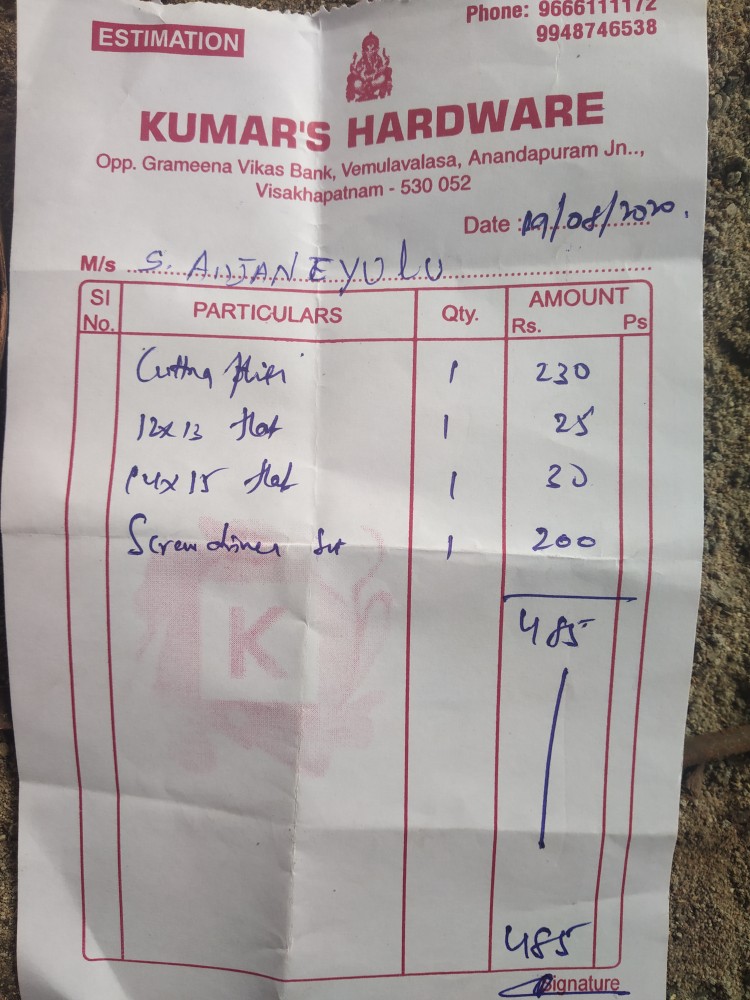 Phone: 9666111172
9948746538
ESTIMATION
KUMAR'S HARDWARE
Opp. Grameena Vikas Bank, Vemulavalasa, Anandapuram Jn..,
Visakhapatnam - 530 052
Date : 19/08/2020.
M/s S. ANJANEYULU
Sl No. PARTICULARS Qty. AMOUNT Rs. Ps
Cutting plier 1 230
12x13 flat 1 25
14x15 flat 1 30
Screw driver Set 1 200
485
K
485
Signature